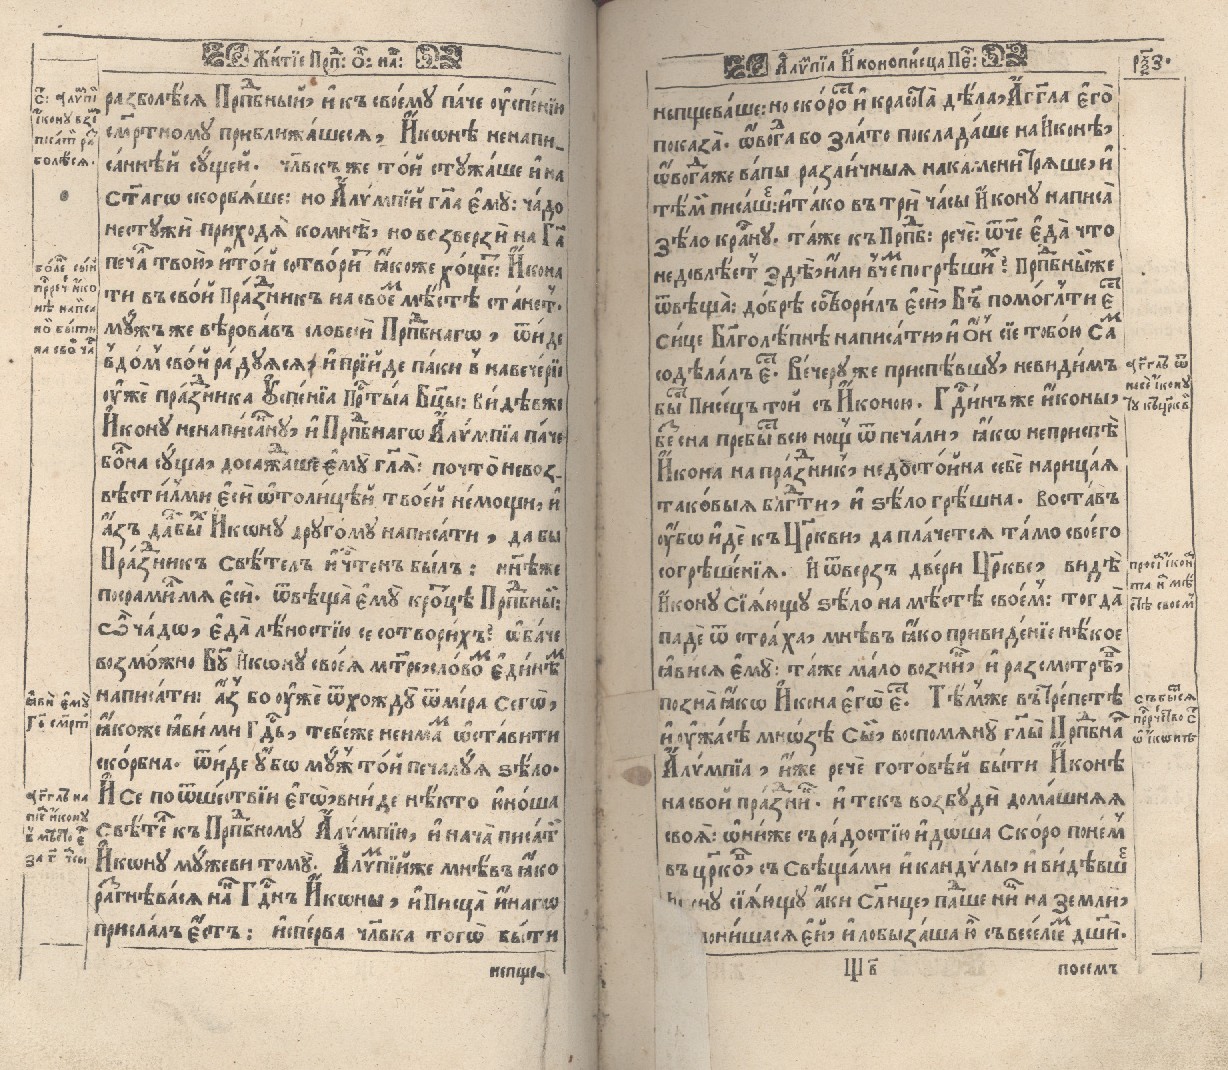 Житїе Прпⷣ: Ѻ҃: на҃:
С: Алѵпї
ікону взѧ
писат ра
болѣсѧ.
разболѣсѧ Прпⷣбный, и къ своемꙋ паче оуспенїю
смртномꙋ приближашесѧ, Иконѣ ненапи_
саннѣй сꙋщей. члвкъ же той стꙋжаше и на
Стагѡ скорбѧше: но Алѵмпїй гла емꙋ: чадо
нестꙋжи приходѧ комнѣ, но возверзи на Га
печа твою, и той сотворит ꙗкоже хощет: Икона
ти въ свой Празⷣник на своем мѣстѣ станет.
мꙋжъ же вѣровавъ словеси Прпⷣбнагѡ, ѿиде
в дом свой радꙋѧсѧ, и прїиде паки в навечерїи
оуже празⷣника Оуспенїа Прстыа Бцы: видѣвже
Иконꙋ ненаписанꙋ, и Прпⷣбнагѡ Алѵмпїа паче
болна сꙋща, досаждаше емꙋ глѧ: почто невоз_
вѣстилми еси ѡ толицѣй твоей немощи, и
азъ далбых Иконꙋ дрꙋгомꙋ написати, да бы
Празⷣник свѣтел и чстенъ былъ: ннѣже
посрамилмѧ еси. ѿвѣща емꙋ кротцѣ Прпⷣбный:
Ѽ чадѡ, еда лѣностїю се сотворихъ? ѡбаче
возможно Бгꙋ Иконꙋ своеѧ мтре, словом единѣм
написати: аз бо оуже ѿхождꙋ ѿ мїра сегѡ,
ꙗкоже ꙗви ми Гдь, тебеже неимам ѡставити
скорбна. ѿиде оубо мꙋж той печалꙋѧ ѕѣло.
И се по ѿшествїи егѡ, вниде нѣкто юноша
свѣтел къ Прпⷣбномꙋ Алѵмпїю, и нача писат
Иконꙋ мꙋжеви томꙋ. Алѵмпїйже мнѣвъ ꙗко
разгнѣвасѧ на Гдинъ Иконы, и писца инагѡ
прислалъ естъ: исперва члвка тогѡ быти
непще_
боле сый
прречѐ ико
нѣ напса
нѣ быти
на свой ча
ꙗви емꙋ
Гь смерт
Аггль на
писа иконꙋ
в мѣсто е
за г҃ часы
Алѵпїа Иконописца Пе:
рѯ҃з.
непщеваше: но скорость и красота дѣла, Аггла его
показа. ѡвогда бо злато покладаше на Иконѣ,
ѡвогдаже вапы различныѧ на камени трѧше, и
тѣм писаше: и тако въ три часы Иконꙋ написа
зѣло краснꙋ. таже къ Прпⷣб: рече: ѿче еда что
недовлѣетъ здѣ, или в чем погрѣших? Прпⷣбныже
ѿвѣща: добрѣ сотворилъ еси, Бгъ поможе ти
сице Блголѣпнѣ написати, и Он сїе тобою Сам
содѣлалъ е. Вечерꙋже приспѣвшꙋ, невидимъ
бысть Писецъ той съ Иконою. Гдинъже иконы,
без сна пребы всю нощ ѿ печали, ꙗкѡ неприспѣ
Икона на празⷣник, недостойна себе нарицаѧ
таковыѧ блгⷣти, и ѕѣло грѣшна. Воставъ
оубѡ иде къ Цркви, да плачетсѧ тамо своего
согрѣшенїѧ. И ѿверзъ двери Црквѐ, видѣ
Иконꙋ сїѧющꙋ ѕѣло на мѣстѣ своем: тогда
паде ѿ страха, мнѣвъ ꙗко привиденїе нѣкое
ꙗвисѧ емꙋ: таже мало возник, и разсмотрѣв,
позна ꙗкѡ Икона егѡ е. Тѣмже въ трепетѣ
и оужасѣ мнозѣ сый, воспомѧнꙋ глы Прпⷣбна
Алѵмпїа, иже рече готовѣй быти Иконѣ
на свой празⷣник. и текъ возбꙋди домашнѧѧ
своѧ: ѡниже съ радостїю идоша скоро по нем
въ црков, съ Свѣщами и кандилы, и видѣвше
Иконꙋ сїѧющꙋ аки Слнце, падше ниц на земли,
поклонишасѧ ей, и лобызаша ю съ веселїем дши.
Щ в҃
посемъ
Агглъ ѿ
несе иконꙋ
тꙋ къ црков
просїѧ ікон
та на мѣ
стѣ своем
Съ быстсѧ
пррчество с
ѡ иконѣ